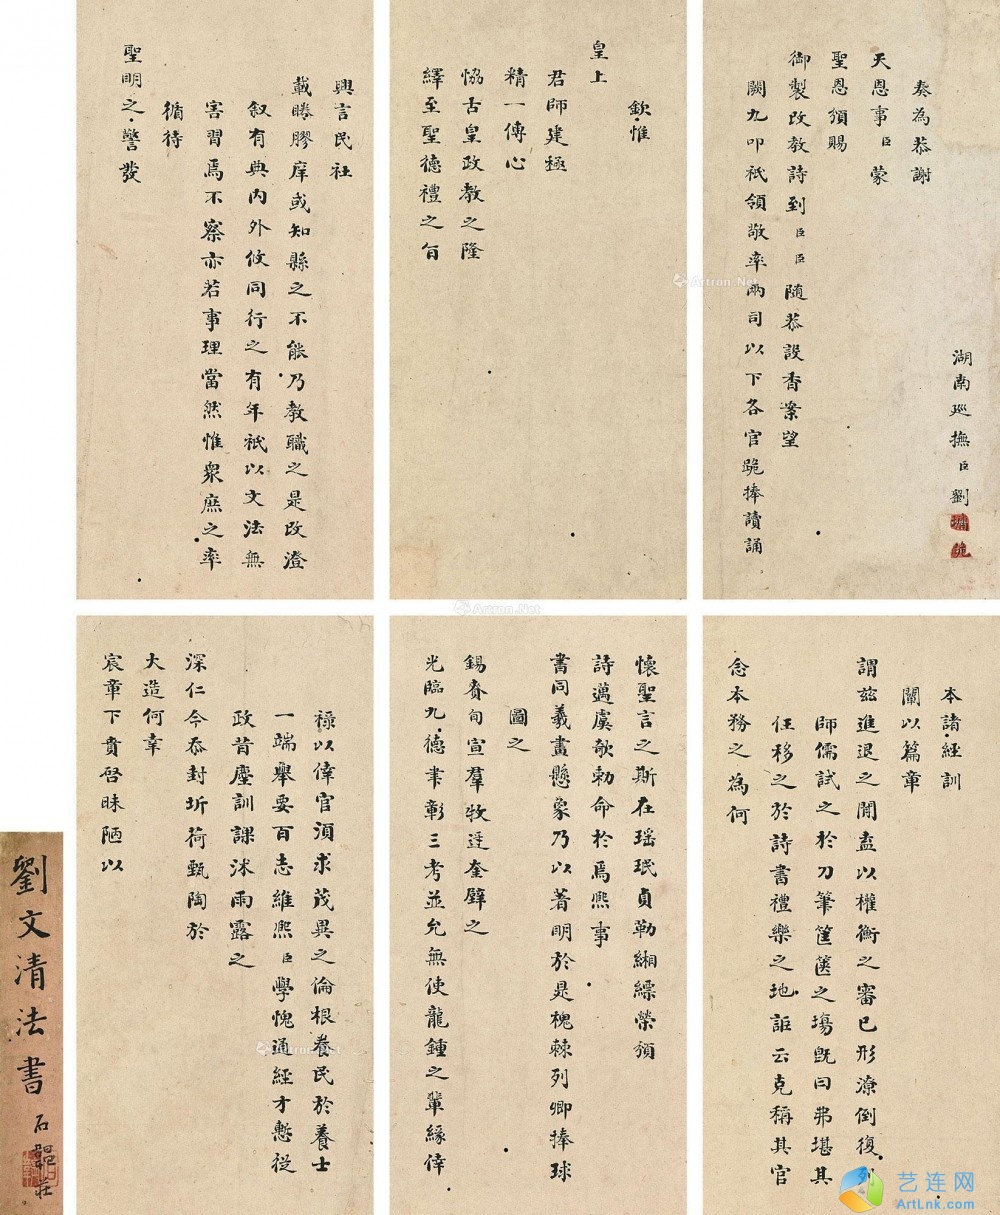 湖南巡撫臣劉墉跪
奏為恭謝
天恩事臣蒙
聖恩頒賜
御製改教詩到臣臣隨恭設香案望
闕九叩祇領敬率兩司以下各官跪捧讀誦
欽惟
皇上
君師建極
精一傳心
恊古皇政教之隆
繹至聖德禮之旨
興言民社
載睠膠庠或知縣之不能乃教職之是改澄
叙有典內外攸同行之有年祇以文法無
害習焉不察亦若事理當然惟衆庶之率
循待
聖明之警發
本諸經訓
闡以篇章
謂茲進退之間盍以權衡之審已形潦倒復列
師儒試之於刀筆筐篋之場旣曰弗堪其
任移之於詩書禮樂之地詎云克稱其官
念本務之為何
懷聖言之斯在瑶珉貞勒緗縹榮頒
詩邁虞歌勅命於焉熙事
書同羲畫懸象乃以著明於是槐棘列卿捧球
圖之
錫賚旬宣羣牧迓奎壁之
光臨九德聿彰三考並允無使龍鍾之輩緣倖
祿以倖官須求茂異之倫根養民於養士
一端舉要百志維熙臣學愧通經才慙從
政昔塵訓課沐雨露之
深仁今忝封圻荷甄陶於
大造何幸
宸章下賁啓昧陋以
劉文清法書
石
莊
Artron.Net
Artron.Net
Artron.Net
Artron.Net
艺连网
ArtLnk.com